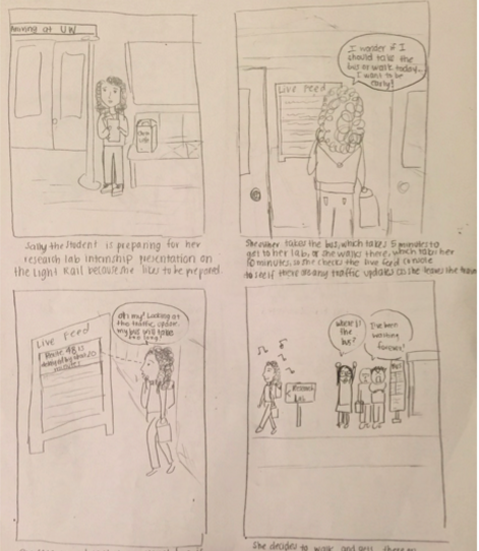 Arriving at UW
Sally the student is preparing for her
research lab internship presentation on
the Light Rail because she likes to be prepared.
I wonder if I
should take the
bus or walk today...
I want to be
early!
LIVE Feed
She either takes the bus, which takes 5 minutes to
get to her lab, or she walks there, which takes her
10 minutes, so she checks the live feed
to see if there are any traffic updates as she leaves the train
Oh my! Looking at
this traffic update,
my bus will take
too long!
LIVE Feed
Route 48 is
delayed by
minutes
Where is
the
bus?
I've been
waiting
forever!
Research
Lab
BUS
She decides to walk and gets there